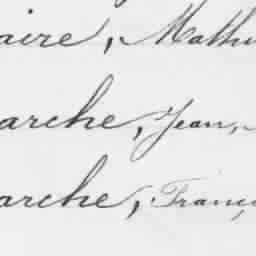 aire, Mathu
arche, Jean,
arche, Franç